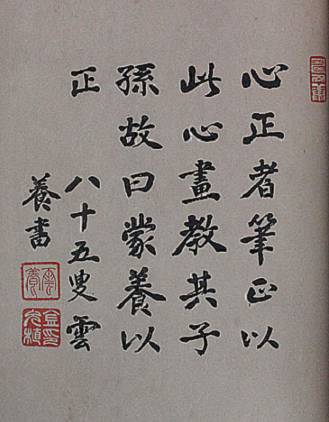 心正者筆正以
此心畫教其子
孫故曰蒙養以
正
八十五叟雲
養書